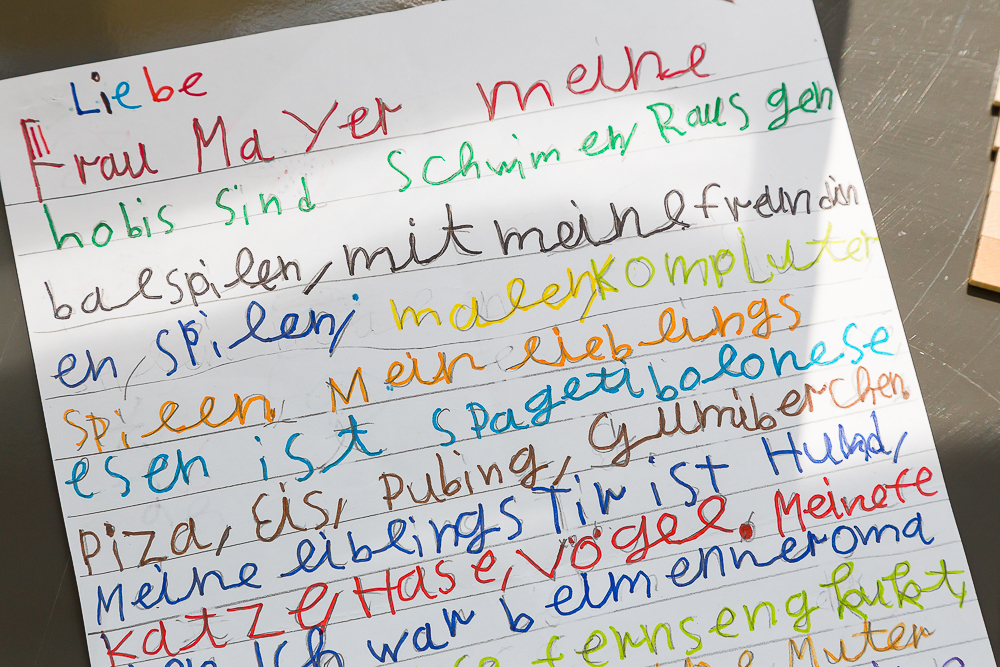 Liebe
Frau Mayer meine
hobis sind Schwimen Raus gen
balspilen, mit meine freundin
en spilen, malen Kompluter
spilen. Mein lieblings
esen ist spageti bolonese
Piza, Eis, Pubing, Gumiberchen.
Meine liblings Tir ist Hund,
Katze, Hase, Vögel. Meine fe
Ich war bei menner oma
fernseng kukt,
Muter